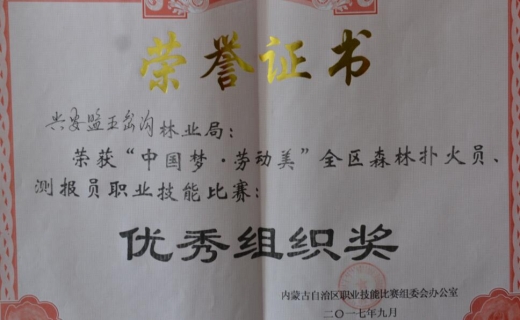 荣誉证书
兴安盟五岔沟林业局：
荣获“中国梦·劳动美”全区森林扑火员、
测报员职业技能比赛：
优秀组织奖
内蒙古自治区职业技能比赛组委会办公室
二〇一七年九月